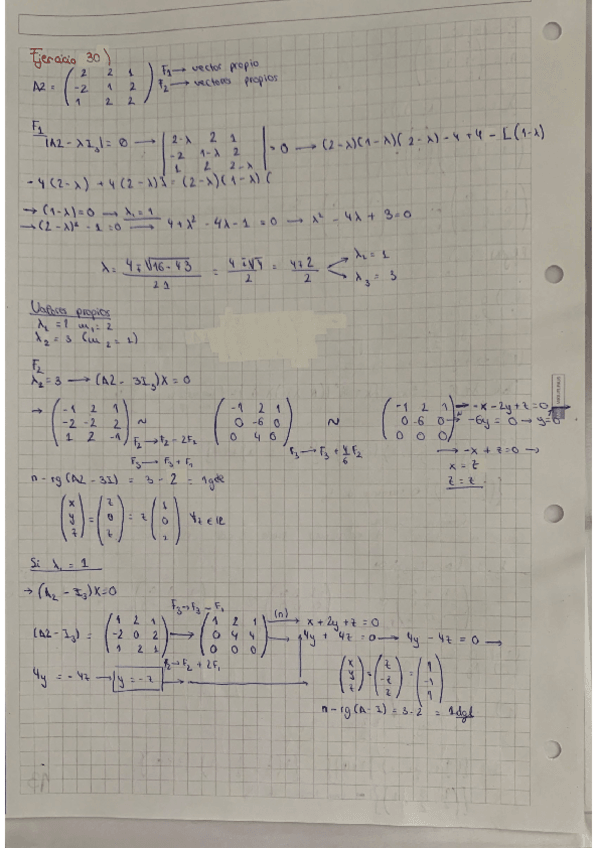 Ejercicio 30)
A2 = ( 2 2 1 ; -2 1 2 ; 1 2 2 ) F1 → vector propio
F2 → vectores propios
F1
|A2 - λI3| = 0 → | 2-λ 2 1 ; -2 1-λ 2 ; 1 2 2-λ | = 0 → (2-λ)(1-λ)(2-λ) - 4 + 4 - [(1-λ)
- 4(2-λ) + 4(2-λ)] = (2-λ)(1-λ)(
→ (1-λ)=0 → λ1 = 1
→ (2-λ)² - 1 = 0 → 4 + λ² - 4λ - 1 = 0 → λ² - 4λ + 3 = 0
λ = 4 ± √16 - 4·3 / 2·1 = 4 ± √4 / 2 = 4 ± 2 / 2
λ2 = 1
λ3 = 3
Valores propios
λ1 = 1 m1 = 2
λ2 = 3 (m2 = 1)
F2
λ2 = 3 → (A2 - 3I3)X = 0
→ ( -1 2 1 ; -2 -2 2 ; 1 2 -1 ) ~ ( -1 2 1 ; 0 -6 0 ; 0 4 0 ) ~ ( -1 2 1 ; 0 -6 0 ; 0 0 0 ) → -x - 2y + z = 0
→ -6y = 0 → y = 0
F2 → F2 - 2F1
F3 → F3 + F1
F3 → F3 + 4/6 F2
→ -x + z = 0 →
x = z
z = z
n - rg(A2 - 3I) = 3 - 2 = 1gdl
( x ; y ; z ) = ( z ; 0 ; z ) = z ( 1 ; 0 ; 1 ) ∀z ∈ ℝ
Si λ1 = 1
→ (A2 - I3)X = 0
F3 → F3 - F1
(A2 - I3) = ( 1 2 1 ; -2 0 2 ; 1 2 1 ) → ( 1 2 1 ; 0 4 4 ; 0 0 0 ) (n) → x + 2y + z = 0
→ 4y + 4z = 0 → 4y - 4z = 0 →
F2 → F2 + 2F1
4y = -4z → y = -z
( x ; y ; z ) = ( z ; -z ; z ) = ( 1 ; -1 ; 1 )
n - rg(A - I) = 3 - 2 = 1dgl